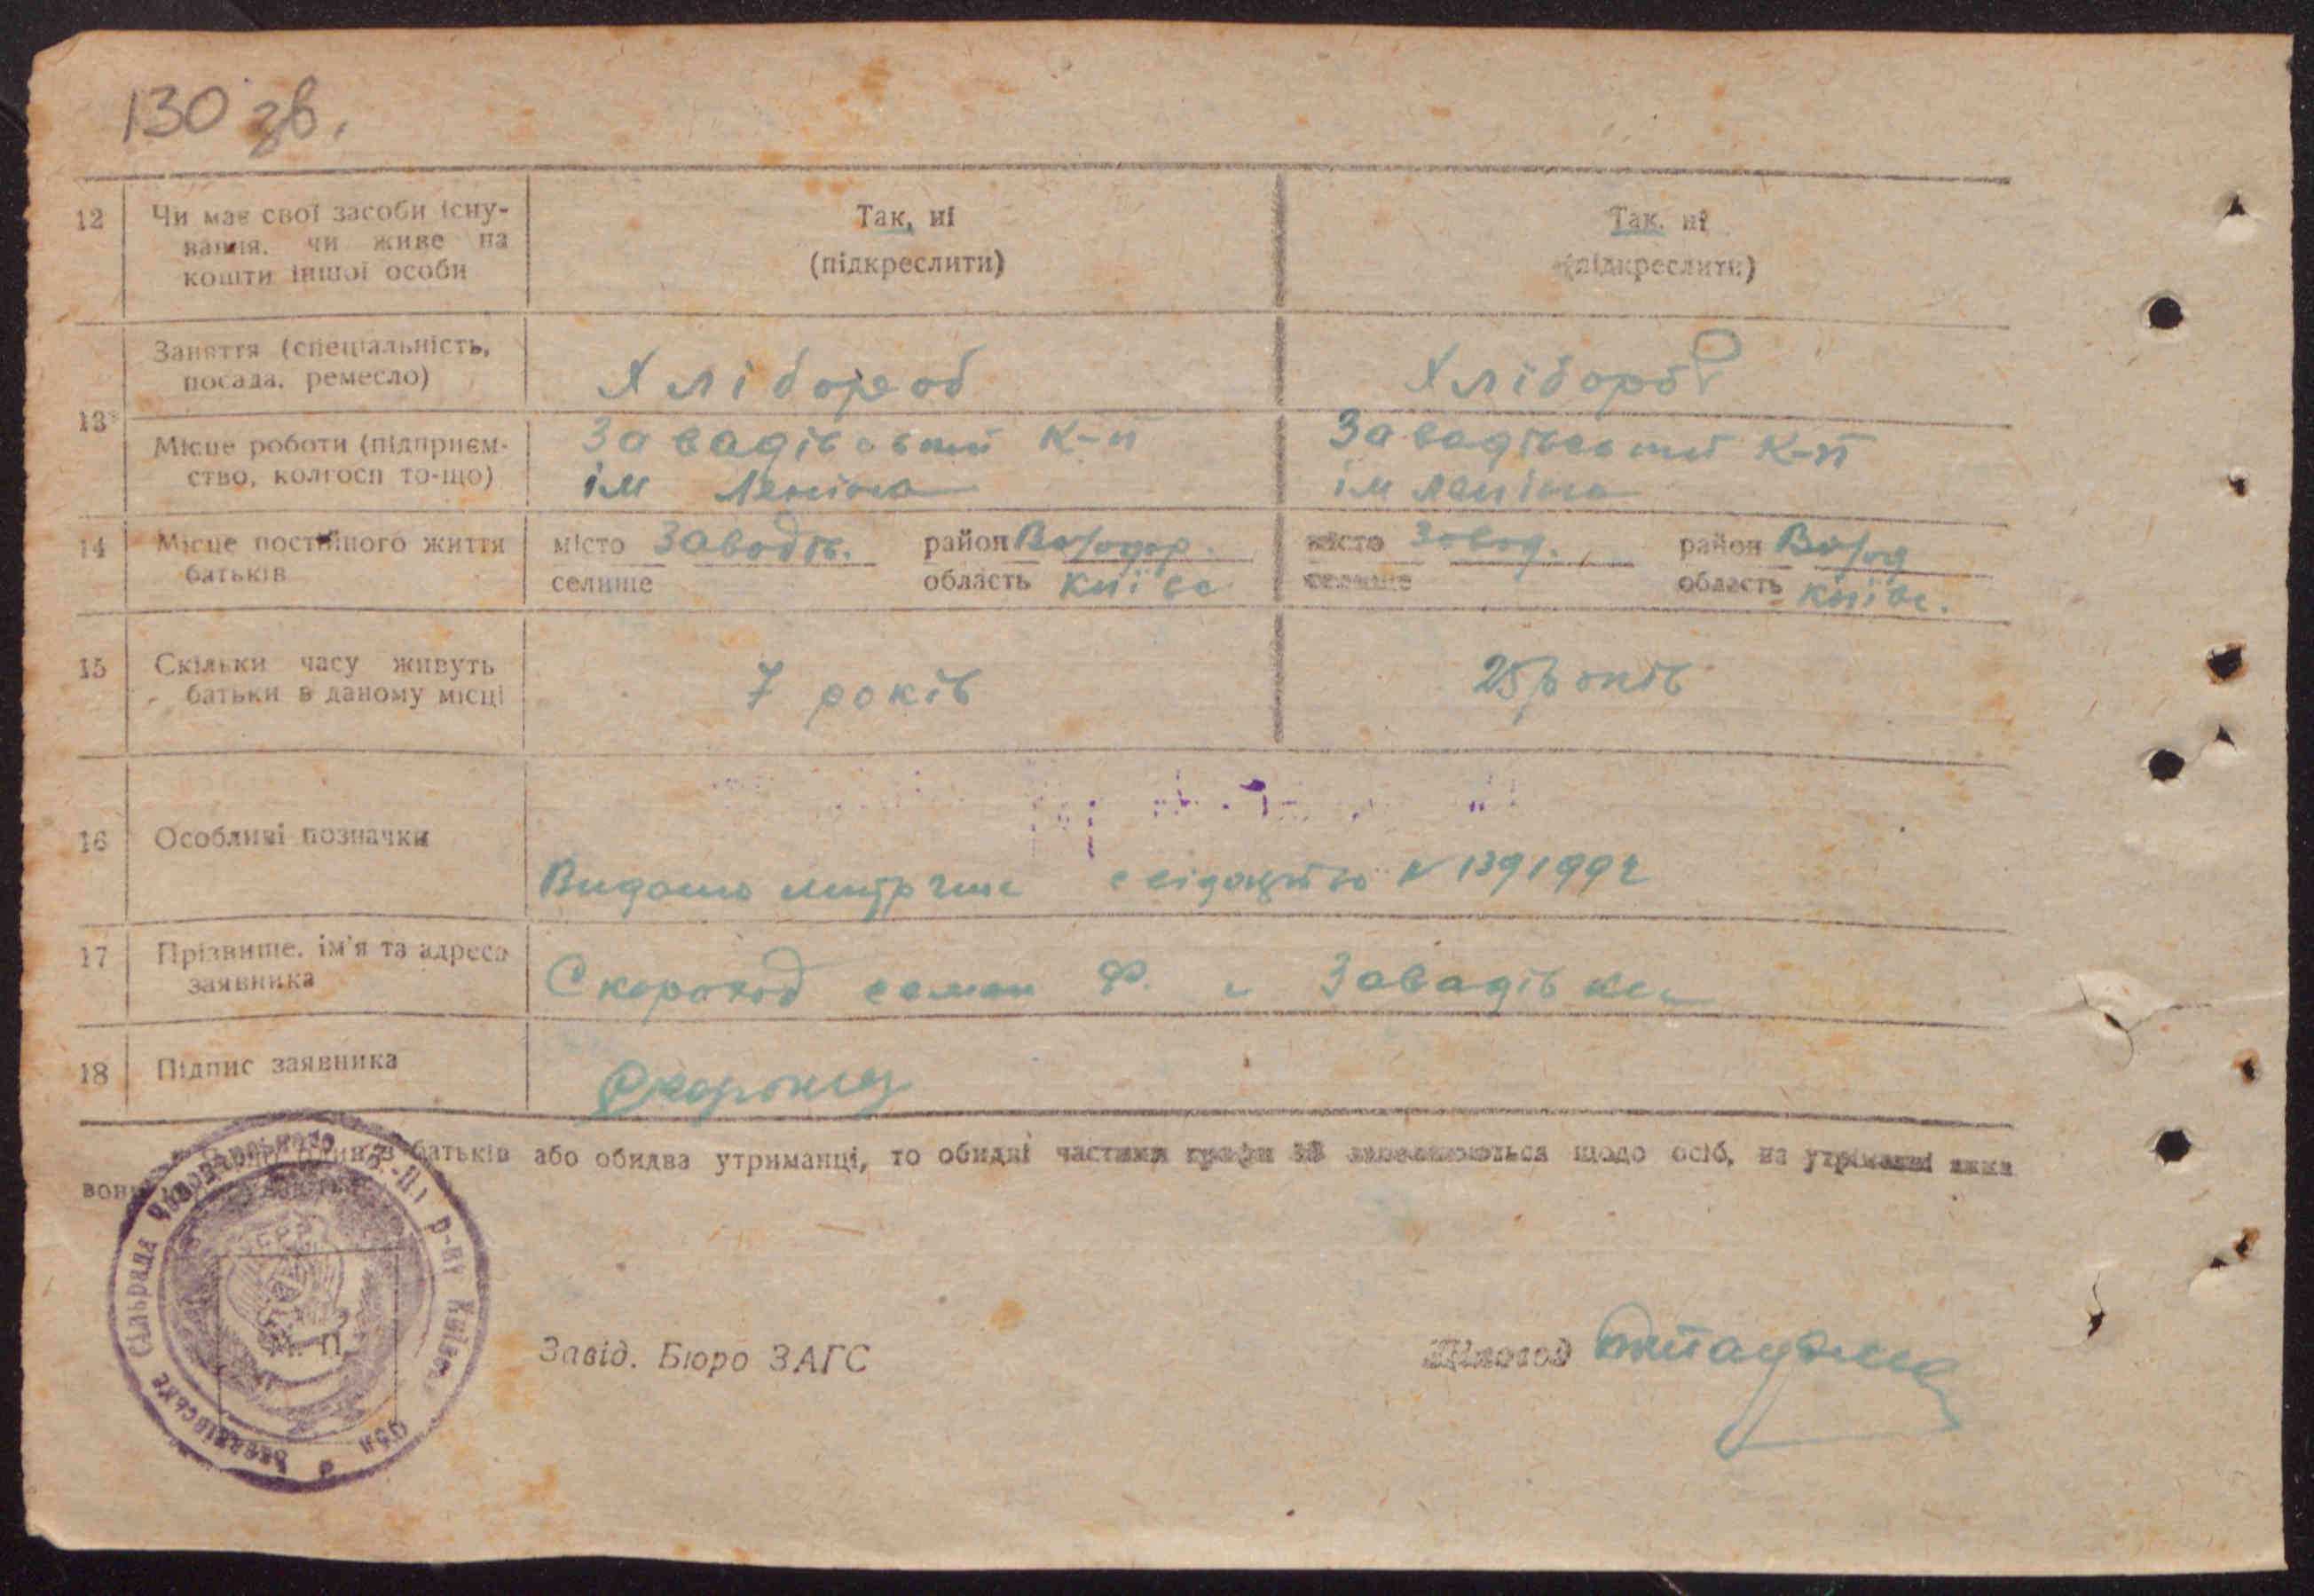 130 зв.
12 Чи має свої засоби існу- Так, ні Так, ні
вання, чи живе на (підкреслити) (підкреслити)
кошти іншої особи
Заняття (спеціальність, Хлібороб Хлібороб
посада, ремесло)
13*
Місце роботи (підприєм- Завадівський к-п Завадівський к-п
ство, колгосп то-що) ім Леніна ім Леніна
14 Місце постійного життя місто Завадів. район Володар. місто Завод. район Волод
батьків селище область Київс селище область Київс.
15 Скільки часу живуть 7 років 25 років
батьки в даному місці
16 Особливі позначки
Видано метричне свідоцтво №
17 Прізвище, ім'я та адреса Скороход семен Ф. с Завадівка
заявника
18 Підпис заявника Скороход
батьків або обидва утриманці, то обидві частини графи 13 заповнюються щодо осіб, на утриманні яких
вони
Завадівська Сільрада Володарського р-ну Київської обл
М. П.
Завід. Бюро ЗАГС Діловод